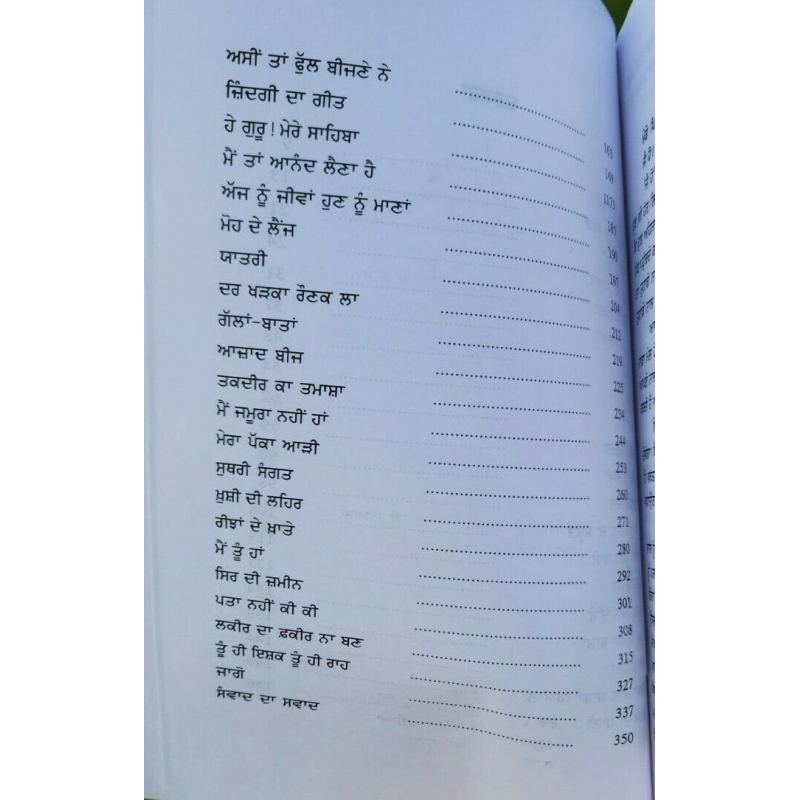 ਅਸੀਂ ਤਾਂ ਫੁੱਲ ਬੀਜਣੇ ਨੇ
ਜ਼ਿੰਦਗੀ ਦਾ ਗੀਤ 169
ਹੇ ਗੁਰੂ! ਮੇਰੇ ਸਾਹਿਬਾ 1173
ਮੈਂ ਤਾਂ ਆਨੰਦ ਲੈਣਾ ਹੈ 181
ਅੱਜ ਨੂੰ ਜੀਵਾਂ ਹੁਣ ਨੂੰ ਮਾਣਾਂ 190
ਮੋਹ ਦੇ ਲੈਂਜ 197
ਯਾਤਰੀ 204
ਦਰ ਖੜਕਾ ਰੌਣਕ ਲਾ 212
ਗੱਲਾਂ-ਬਾਤਾਂ 219
ਆਜ਼ਾਦ ਬੀਜ 225
ਤਕਦੀਰ ਕਾ ਤਮਾਸ਼ਾ 234
ਮੈਂ ਜਮੂਰਾ ਨਹੀਂ ਹਾਂ 244
ਮੇਰਾ ਪੱਕਾ ਆੜੀ 253
ਸੁਥਰੀ ਸੰਗਤ 260
ਖ਼ੁਸ਼ੀ ਦੀ ਲਹਿਰ 271
ਰੀਝਾਂ ਦੇ ਖ਼ਾਤੇ 280
ਮੈਂ ਤੂੰ ਹਾਂ 292
ਸਿਰ ਦੀ ਜ਼ਮੀਨ 301
ਪਤਾ ਨਹੀਂ ਕੀ ਕੀ 308
ਲਕੀਰ ਦਾ ਫ਼ਕੀਰ ਨਾ ਬਣ 315
ਤੂੰ ਹੀ ਇਸ਼ਕ ਤੂੰ ਹੀ ਰਾਹ 327
ਜਾਗੋ 337
ਸੰਵਾਦ ਦਾ ਸਵਾਦ 350